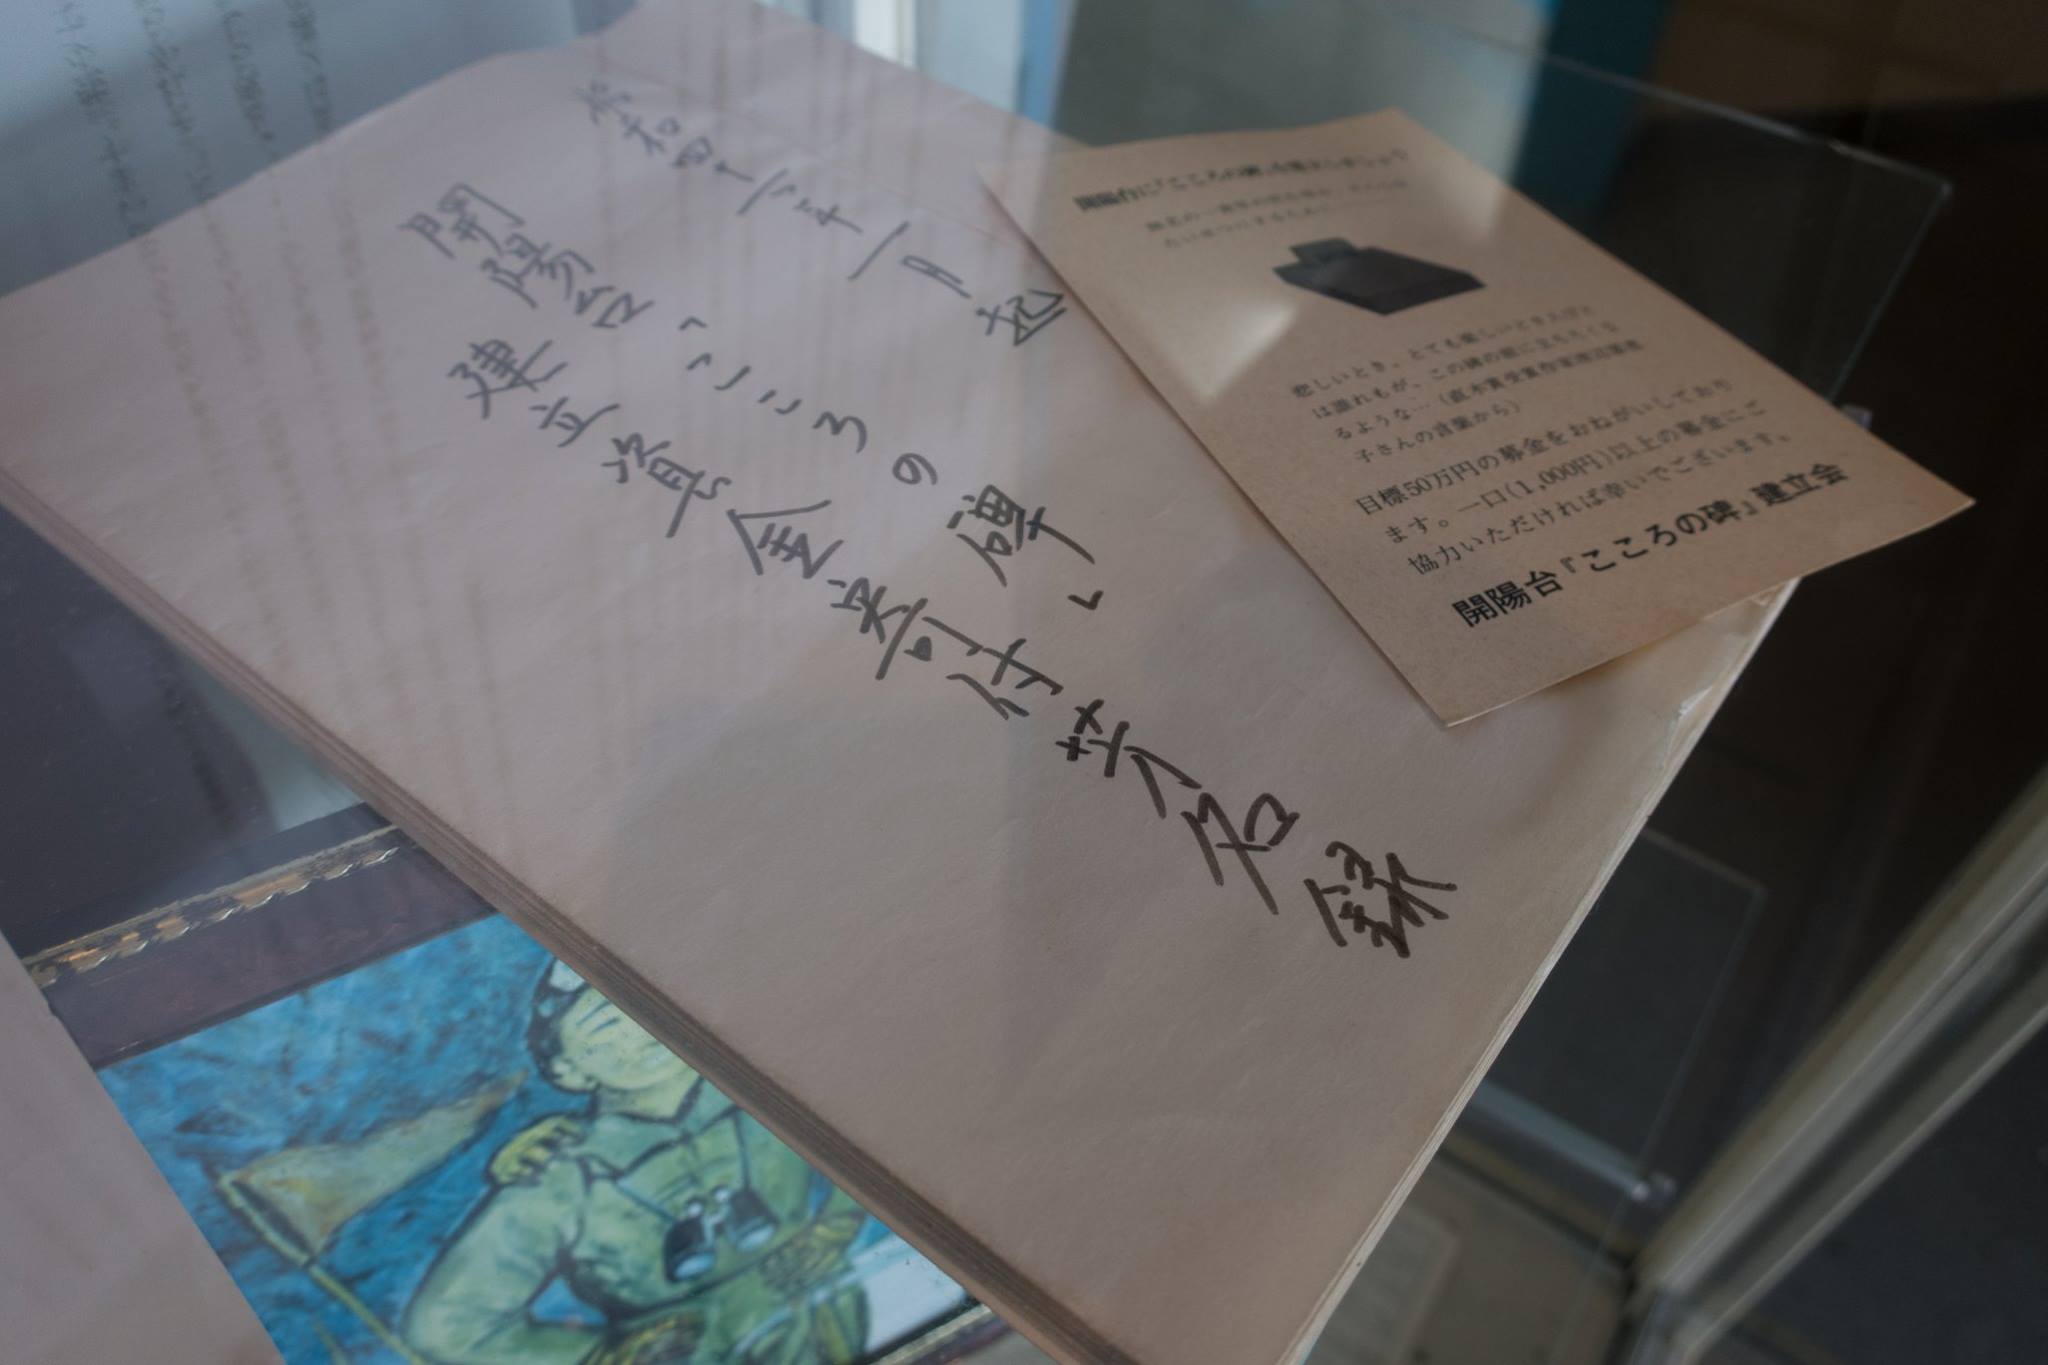 昭和四十六年一月起
開陽台「こころの碑」
建立資金寄付芳名録
開陽台に『こころの碑』を建立しましょう
悲しいとき、とても嬉しいとき人びと
は誰れもが、この碑の前に立ちたくな
るような…(直木賞受賞作家渡辺喜恵
子さんの言葉から)
目標50万円の募金をおねがいしており
ます。一口(1,000円)以上の募金にご
協力いただければ幸いでございます。
開陽台『こころの碑』建立会